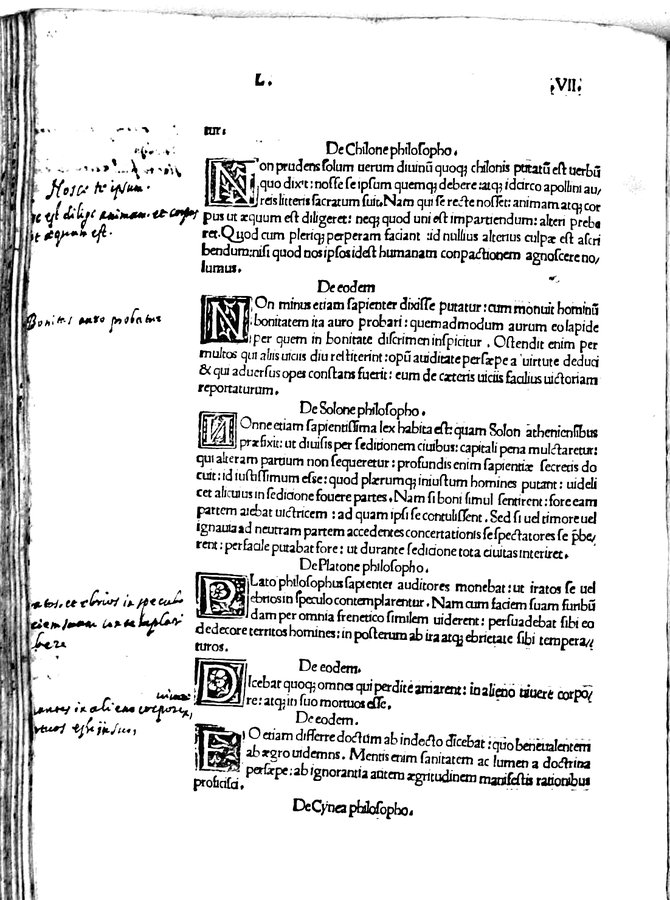 L. .VII.
tur.
De Chilone philosopho.
Non prudens solum uerum diuinũ quoq; chilonis putatũ est uerbũ
quo dixit: nosse se ipsum quemq; debere: atq; idcirco apollini au/
reis litteris sacratum fuit. Nam qui se recte nosset: animam atq; cor
pus ut æquum est diligeret: neq; quod uni est impartiendum: alteri prebe
ret. Quod cum pleriq; perperam faciant :id nullius alterius culpæ est ascri
bendum: nisi quod nos ipsos idest humanam conpactionem agnoscere no/
lumus.
Nosce te ipsum.
est dilige animam. et corpus
æquum est.
De eodem
NOn minus etiam sapienter dixisse putatur: cum monuit hominũ
bonitatem ita auro probari: quemadmodum aurum eo lapide
per quem in bonitate discrimen inspicitur. Ostendit enim per
multos qui aliis uiciis diu restiterint: opũ auiditate persæpe a uirtute deduci
& qui aduersus opes constans fuerit: eum de cæteris uiciis facilius uictoriam
reportaturum.
Bonitas auro probatur
De Solone philosopho.
NOnne etiam sapientissima lex habita est: quam Solon atheniensibus
præfixit: ut diuisis per seditionem ciuibus: capitali pena mulctaretur:
qui alteram partium non sequeretur: profundis enim sapientiæ secretis do
cuit: id iustissimum esse: quod plærumq; iniustum homines putant: uideli
cet alicuius in seditione fouere partes. Nam si boni simul sentirent: fore eam
partem aiebat uictricem: ad quam ipsi se contulissent. Sed si uel timore uel
ignauia ad neutram partem accedentes concertationis se spectatores se p̃be/
rent: per facile putabat fore: ut durante seditione tota ciuitas interiret.
De Platone philosopho.
PLato philosophus sapienter auditores monebat: ut iratos se uel
ebrios in speculo contemplarentur. Nam cum faciem suam furibũ
dam per omnia frenetico similem uiderent: persuadebat sibi eo
dedecore territos homines: in posterum ab ira atq; ebrietate sibi tempera//
turos.
et ebrios in speculo
contemplari
De eodem.
DIcebat quoq; omnes qui perdite amarent: in alieno uiuere corpo/
re: atq; in suo mortuos esse.
in alieno corpore,
De eodem.
EO etiam differre doctum ab indocto dicebat: quo beneualentem
ab ægro uidemus. Mentis enim sanitatem ac lumen a doctrina
persæpe: ab ignorantia autem ægritudinem manifestis rationibus
proficisci.
De Cynea philosopho.